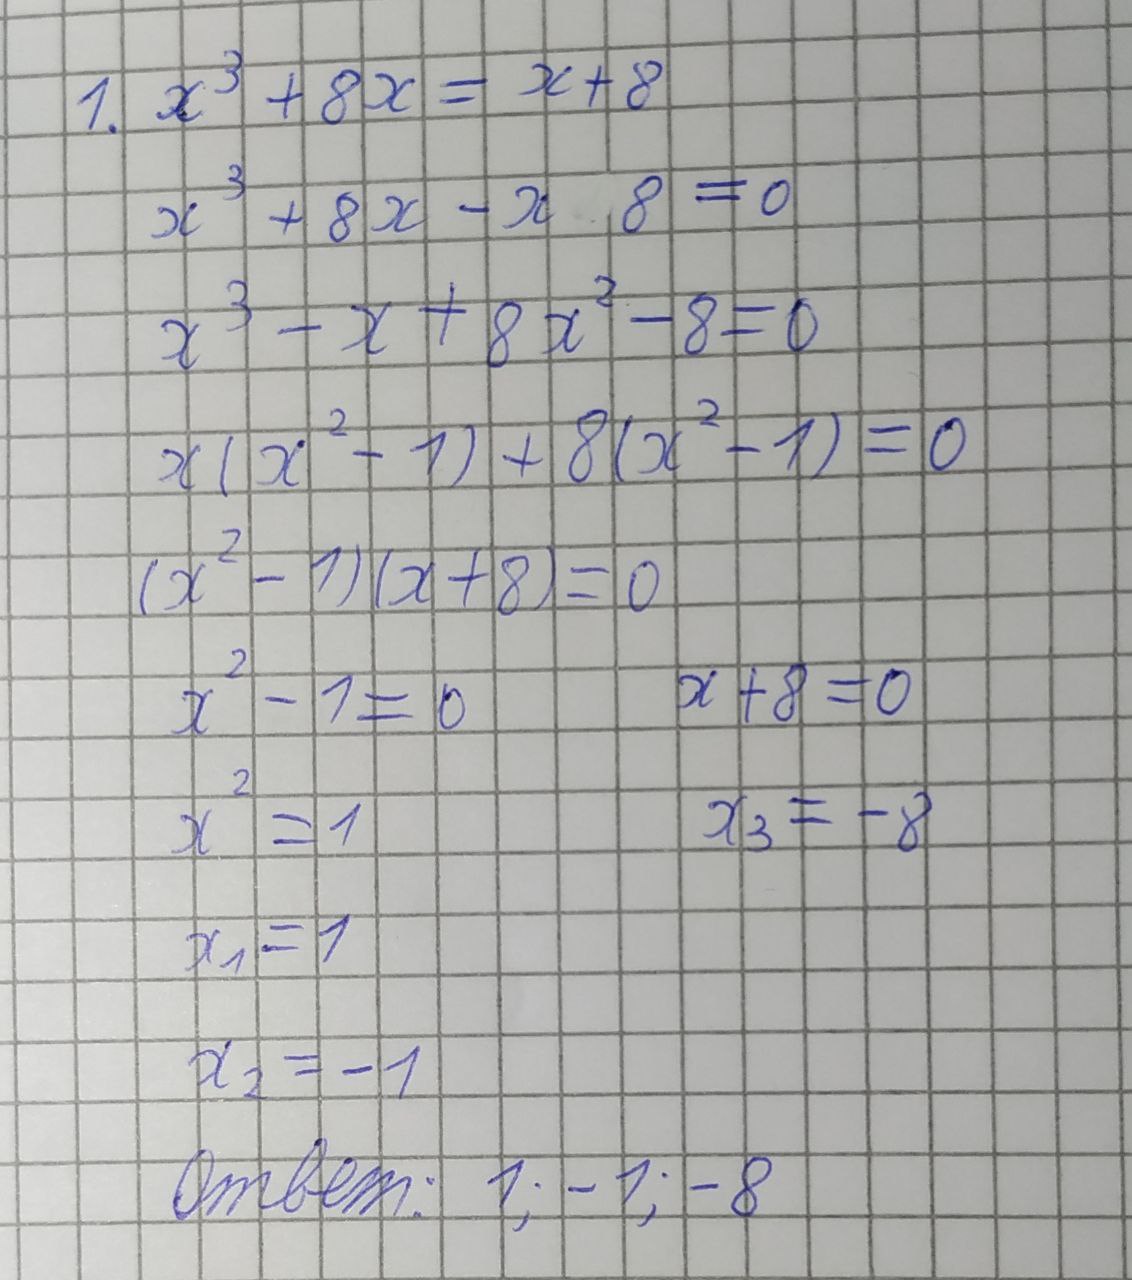 1. x³ + 8x = x + 8
x³ + 8x - x 8 = 0
x³ - x + 8x² - 8 = 0
x(x² - 1) + 8(x² - 1) = 0
(x² - 1)(x + 8) = 0
x² - 1 = 0 x + 8 = 0
x² = 1 x₃ = -8
x₁ = 1
x₂ = -1
Ответ: 1; -1; -8